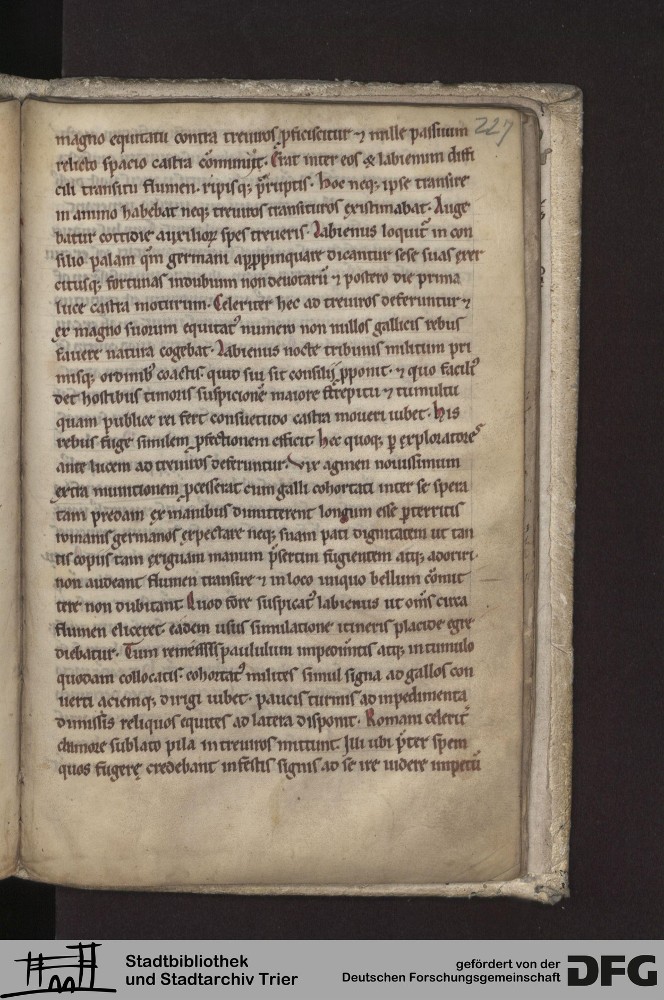 227
magno equitatu contra treuiros ꝓficiscitur ⁊ mille passuum
relicto spacio castra cōmunijt. Erat inter eos & labienum diffi
cili transitu flumen. ripisq; p̄ruptis. Hoc neq; ipse transire
in animo habebat neq; treuiros transituros ęxistimabat. Auge
batur cottidie auxilioꝝ spes treueris. Labienus loquit᷑ in con
silio palam qm̄ germani apꝓpinquare dicantur sese suas exer
citusq; fortunas indubium non deuotarū ⁊ postero die prima
luce castra moturum. Celeriter hec ad treuiros deferuntur ⁊
ex magno suorum equitatꝰ numero non nullos gallicis rebus
fauere natura cogebat. Labienus nocte tribunis militum pri
misq; ordinibꝰ coactis. quid sui sit consilij ꝓponit. ⁊ quo faciliꝰ
det hostibus timoris suspicionē maiore strepitu ⁊ tumultu
quam publice rei fert consuetudo castra moueri iubet. His
rebus fuge similem ꝓfectionem efficit hec quoq; ꝑ exploratores
ante lucem ad treuiros deferuntur. Vix agmen nouissimum
extra munitionem ꝓcesserat cum galli cohortati inter se spera
tam predam ex manibus dimitterent longum esse ꝑterritis
romanis germanos expectare neq; suam pati dignitatem ut tan
tis copiis tam exiguam manum p̄sertim fugientem atq; adoriri.
non audeant flumen transire ⁊ in loco iniquo bellum cōmit
tere non dubitant Quod fore suspicatꝰ labienus ut om̄s circa
flumen eliceret. eadem usus simulatione itineris placide egre
diebatur. Tum paululum impedim̄tis atq; in tumulo
quodam collocatis. cohortatꝰ milites simul signa ad gallos con
uerti aciemq; dirigi iubet. paucis turmis ad inpedimenta
dimissis reliquos equites ad latera disponit. Romani celerit᷑
clamore sublato pila in treuiros mittunt Illi ubi p̄ter spem
quos fugere credebant infestis signis ad se ire uidere impetū
Stadtbibliothek
und Stadtarchiv Trier
gefördert von der
Deutschen Forschungsgemeinschaft
DFG